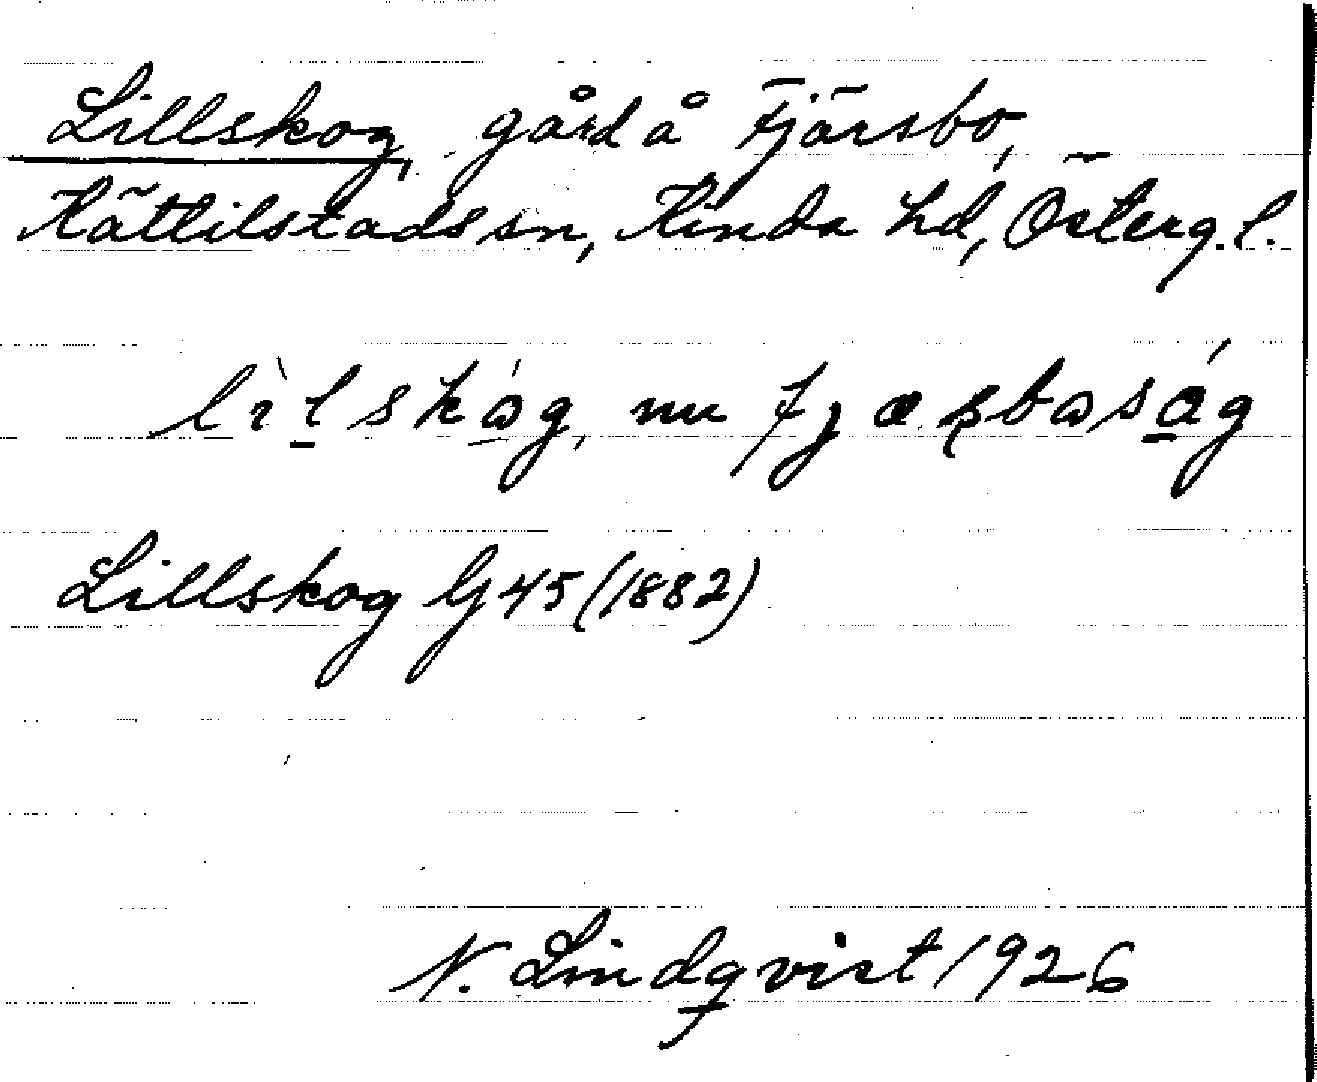 Lillskog, gård å Fjärsbo,
Kättilstads sn, Kinda hd, Österg. l.
lìlskág, nu fjæʂbaság
Lillskog G 45 (1882)
N. Lindqvist 1926